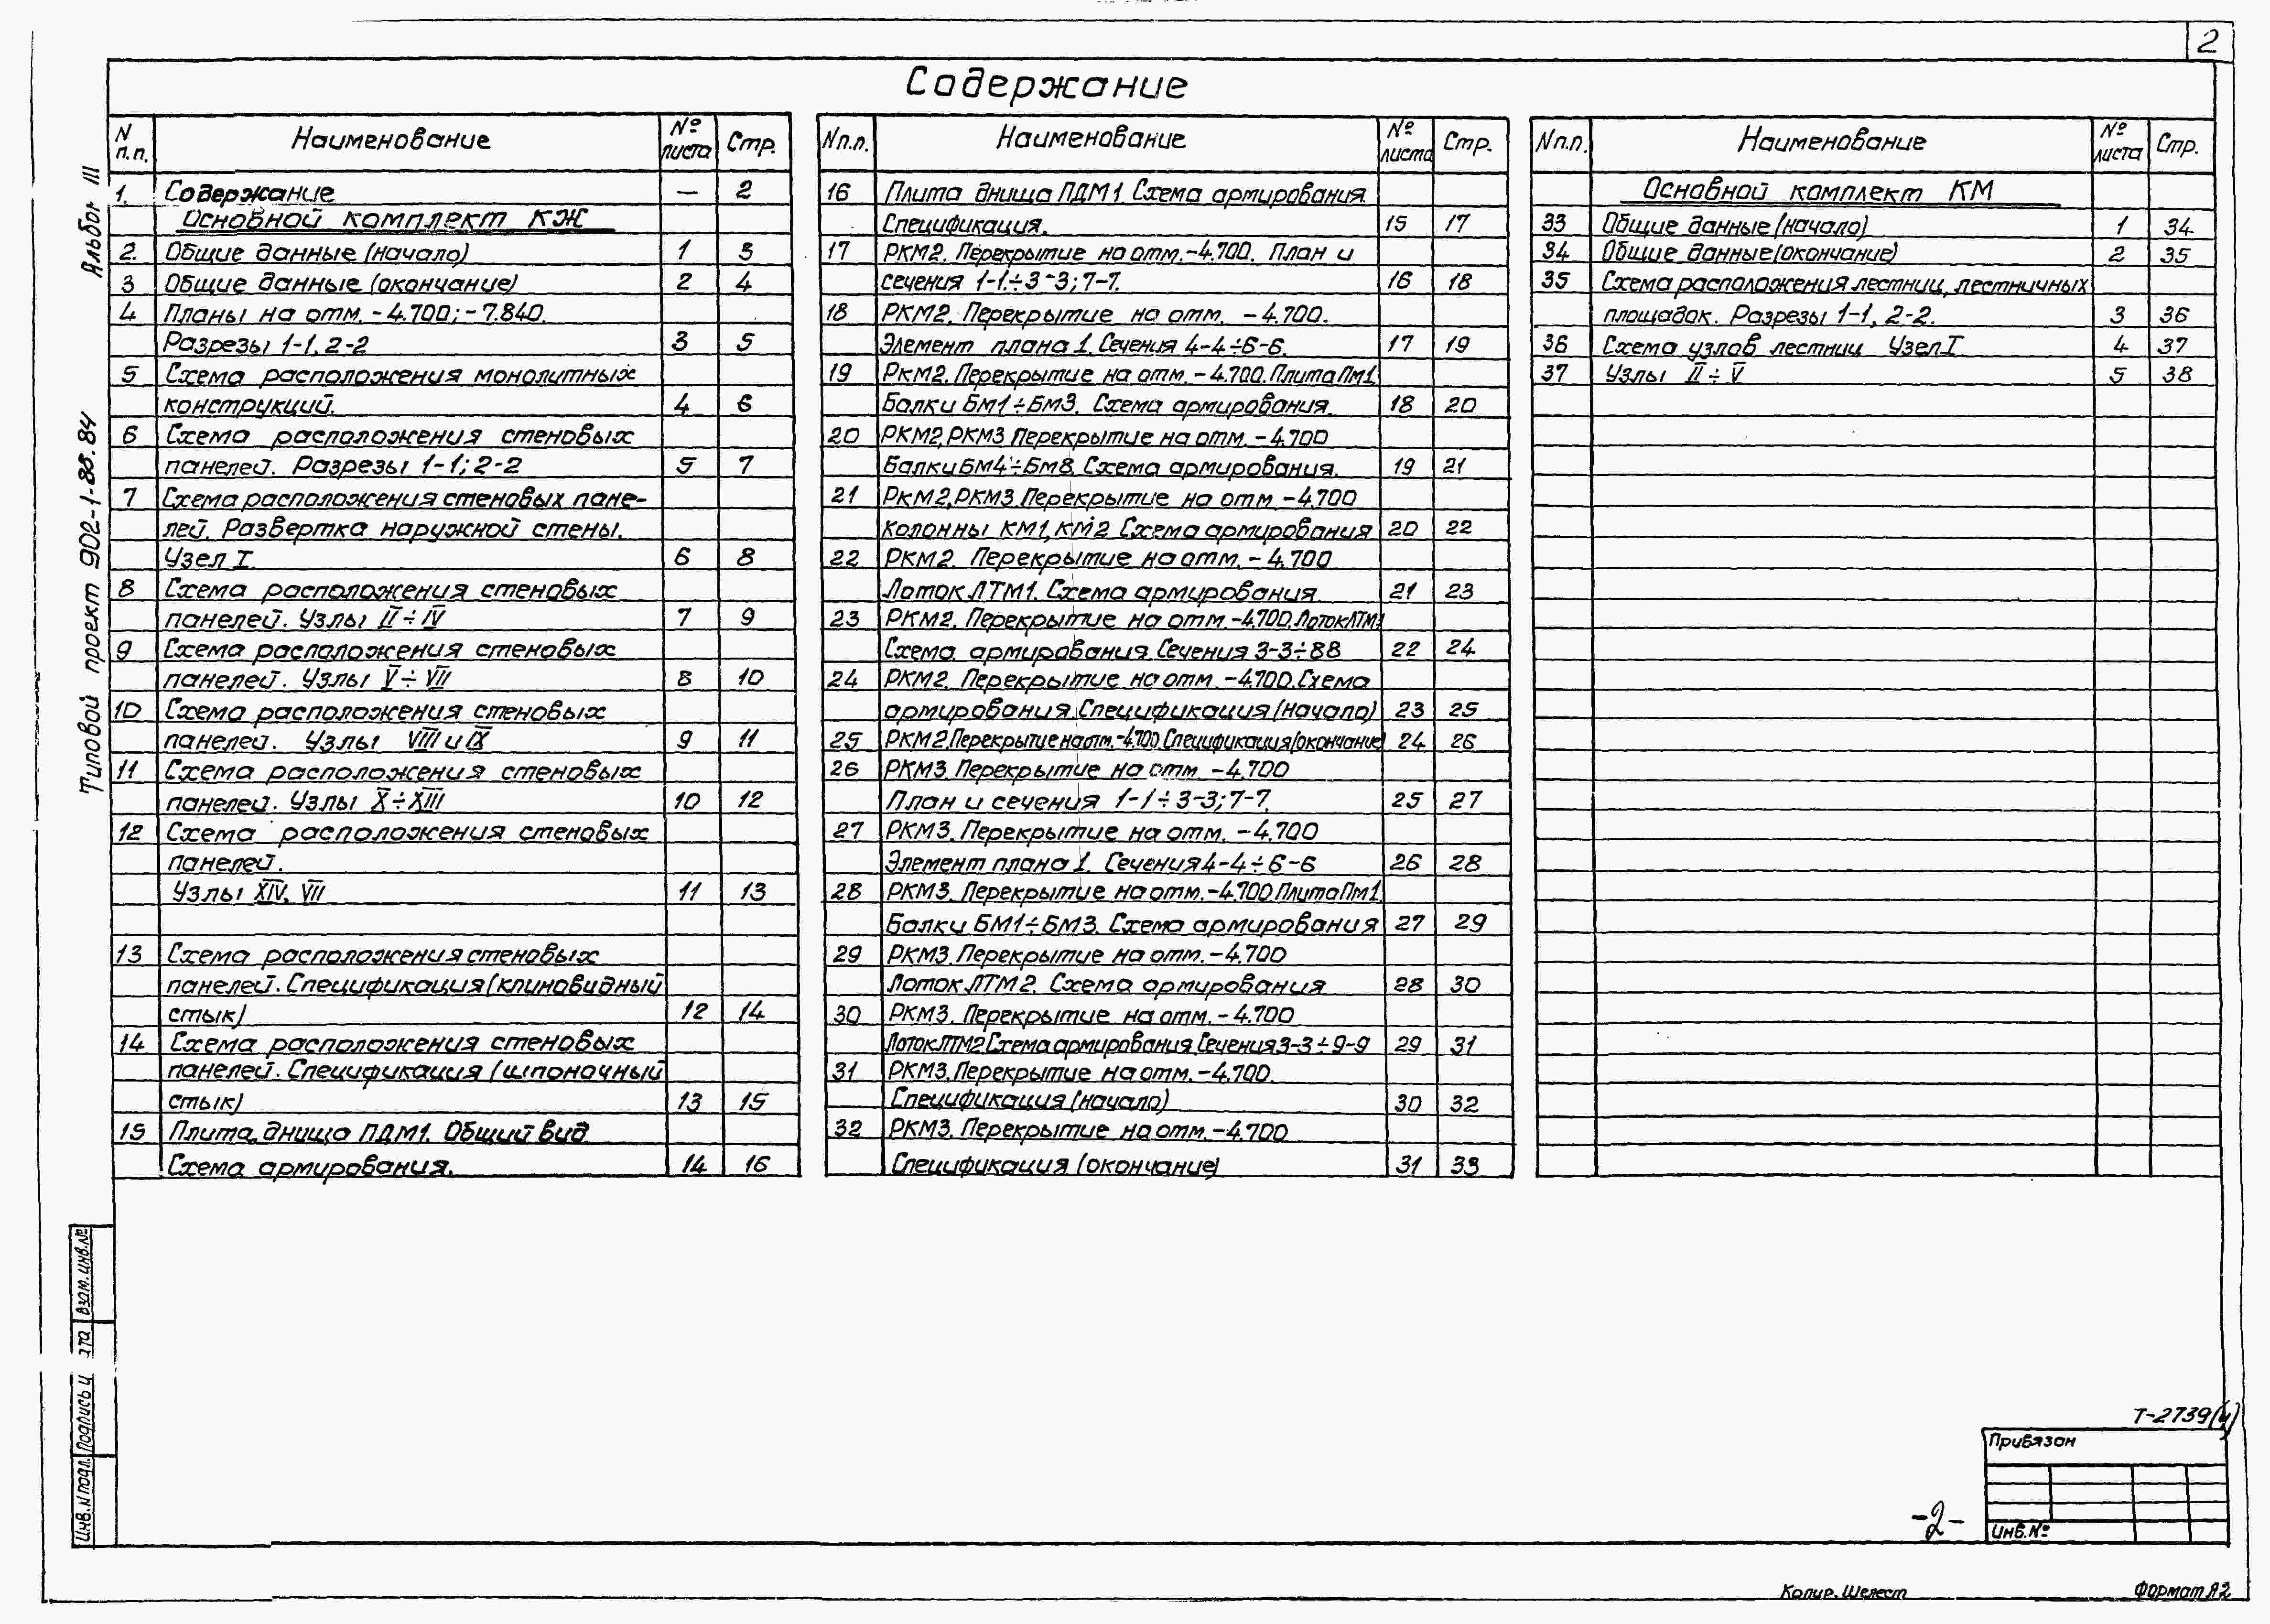 2
Содержание
N п.п. Наименование № листа Стр.
1. Содержание — 2
Основной комплект КЖ
2. Общие данные (начало) 1 3
3 Общие данные (окончание) 2 4
4 Планы на отм. -4.700; -7.840.
Разрезы 1-1, 2-2 3 5
5 Схема расположения монолитных
конструкций. 4 6
6 Схема расположения стеновых
панелей. Разрезы 1-1; 2-2 5 7
7 Схема расположения стеновых пане-
лей. Развертка наружной стены.
Узел I. 6 8
8 Схема расположения стеновых
панелей. Узлы II÷IV 7 9
9 Схема расположения стеновых
панелей. Узлы V÷VII 8 10
10 Схема расположения стеновых
панелей. Узлы VIII и IX 9 11
11 Схема расположения стеновых
панелей. Узлы X÷XIII 10 12
12 Схема расположения стеновых
панелей.
Узлы XIV, VII 11 13
13 Схема расположения стеновых
панелей. Спецификация (клиновидный
стык) 12 14
14 Схема расположения стеновых
панелей. Спецификация (шпоночный
стык) 13 15
15 Плита днища ПДМ1. Общий вид
Схема армирования. 14 16
Nп.п. Наименование № листа Стр.
16 Плита днища ПДМ1. Схема армирования.
Спецификация. 15 17
17 РКМ2. Перекрытие на отм.-4.700. План и
сечения 1-1÷3-3; 7-7. 16 18
18 РКМ2. Перекрытие на отм. -4.700.
Элемент плана 1. Сечения 4-4÷6-6. 17 19
19 РКМ2. Перекрытие на отм. -4.700. Плита Пм1
Балки БМ1÷БМ3. Схема армирования. 18 20
20 РКМ2, РКМ3 Перекрытие на отм. -4.700
Балки БМ4÷БМ8. Схема армирования. 19 21
21 РКМ2, РКМ3. Перекрытие на отм -4.700
Колонны КМ1, КМ2 Схема армирования 20 22
22 РКМ2. Перекрытие на отм. -4.700
Лоток ЛТМ1. Схема армирования 21 23
23 РКМ2. Перекрытие на отм.-4.700. Лоток ЛТМ1
Схема армирования. Сечения 3-3÷88 22 24
24 РКМ2. Перекрытие на отм. -4.700. Схема
армирования. Спецификация (начало) 23 25
25 РКМ2. Перекрытие на отм.-4.700. Спецификация (окончание) 24 26
26 РКМ3. Перекрытие на отм -4.700
План и сечения 1-1÷3-3; 7-7. 25 27
27 РКМ3. Перекрытие на отм. -4.700
Элемент плана 1. Сечения 4-4÷6-6 26 28
28 РКМ3. Перекрытие на отм.-4.700 Плита Пм1.
Балки БМ1÷БМ3. Схема армирования 27 29
29 РКМ3. Перекрытие на отм.-4.700
Лоток ЛТМ2. Схема армирования 28 30
30 РКМ3. Перекрытие на отм. -4.700
Лоток ЛТМ2 Схема армирования. Сечения 3-3÷9-9 29 31
31 РКМ3. Перекрытие на отм.-4.700.
Спецификация (начало) 30 32
32 РКМ3. Перекрытие на отм.-4.700
Спецификация (окончание) 31 33
Nп.п. Наименование № листа Стр.
Основной комплект КМ
33 Общие данные (начало) 1 34
34 Общие данные (окончание) 2 35
35 Схема расположения лестниц, лестничных
площадок. Разрезы 1-1, 2-2. 3 36
36 Схема узлов лестниц Узел I 4 37
37 Узлы II÷V 5 38
Типовой проект 902-1-88.84 Альбом III
Инв. N подл. Подпись и дата Взам. инв. №
Т-2739
Привязан
Инв. №
-2-
Копир. Шелест
Формат А2